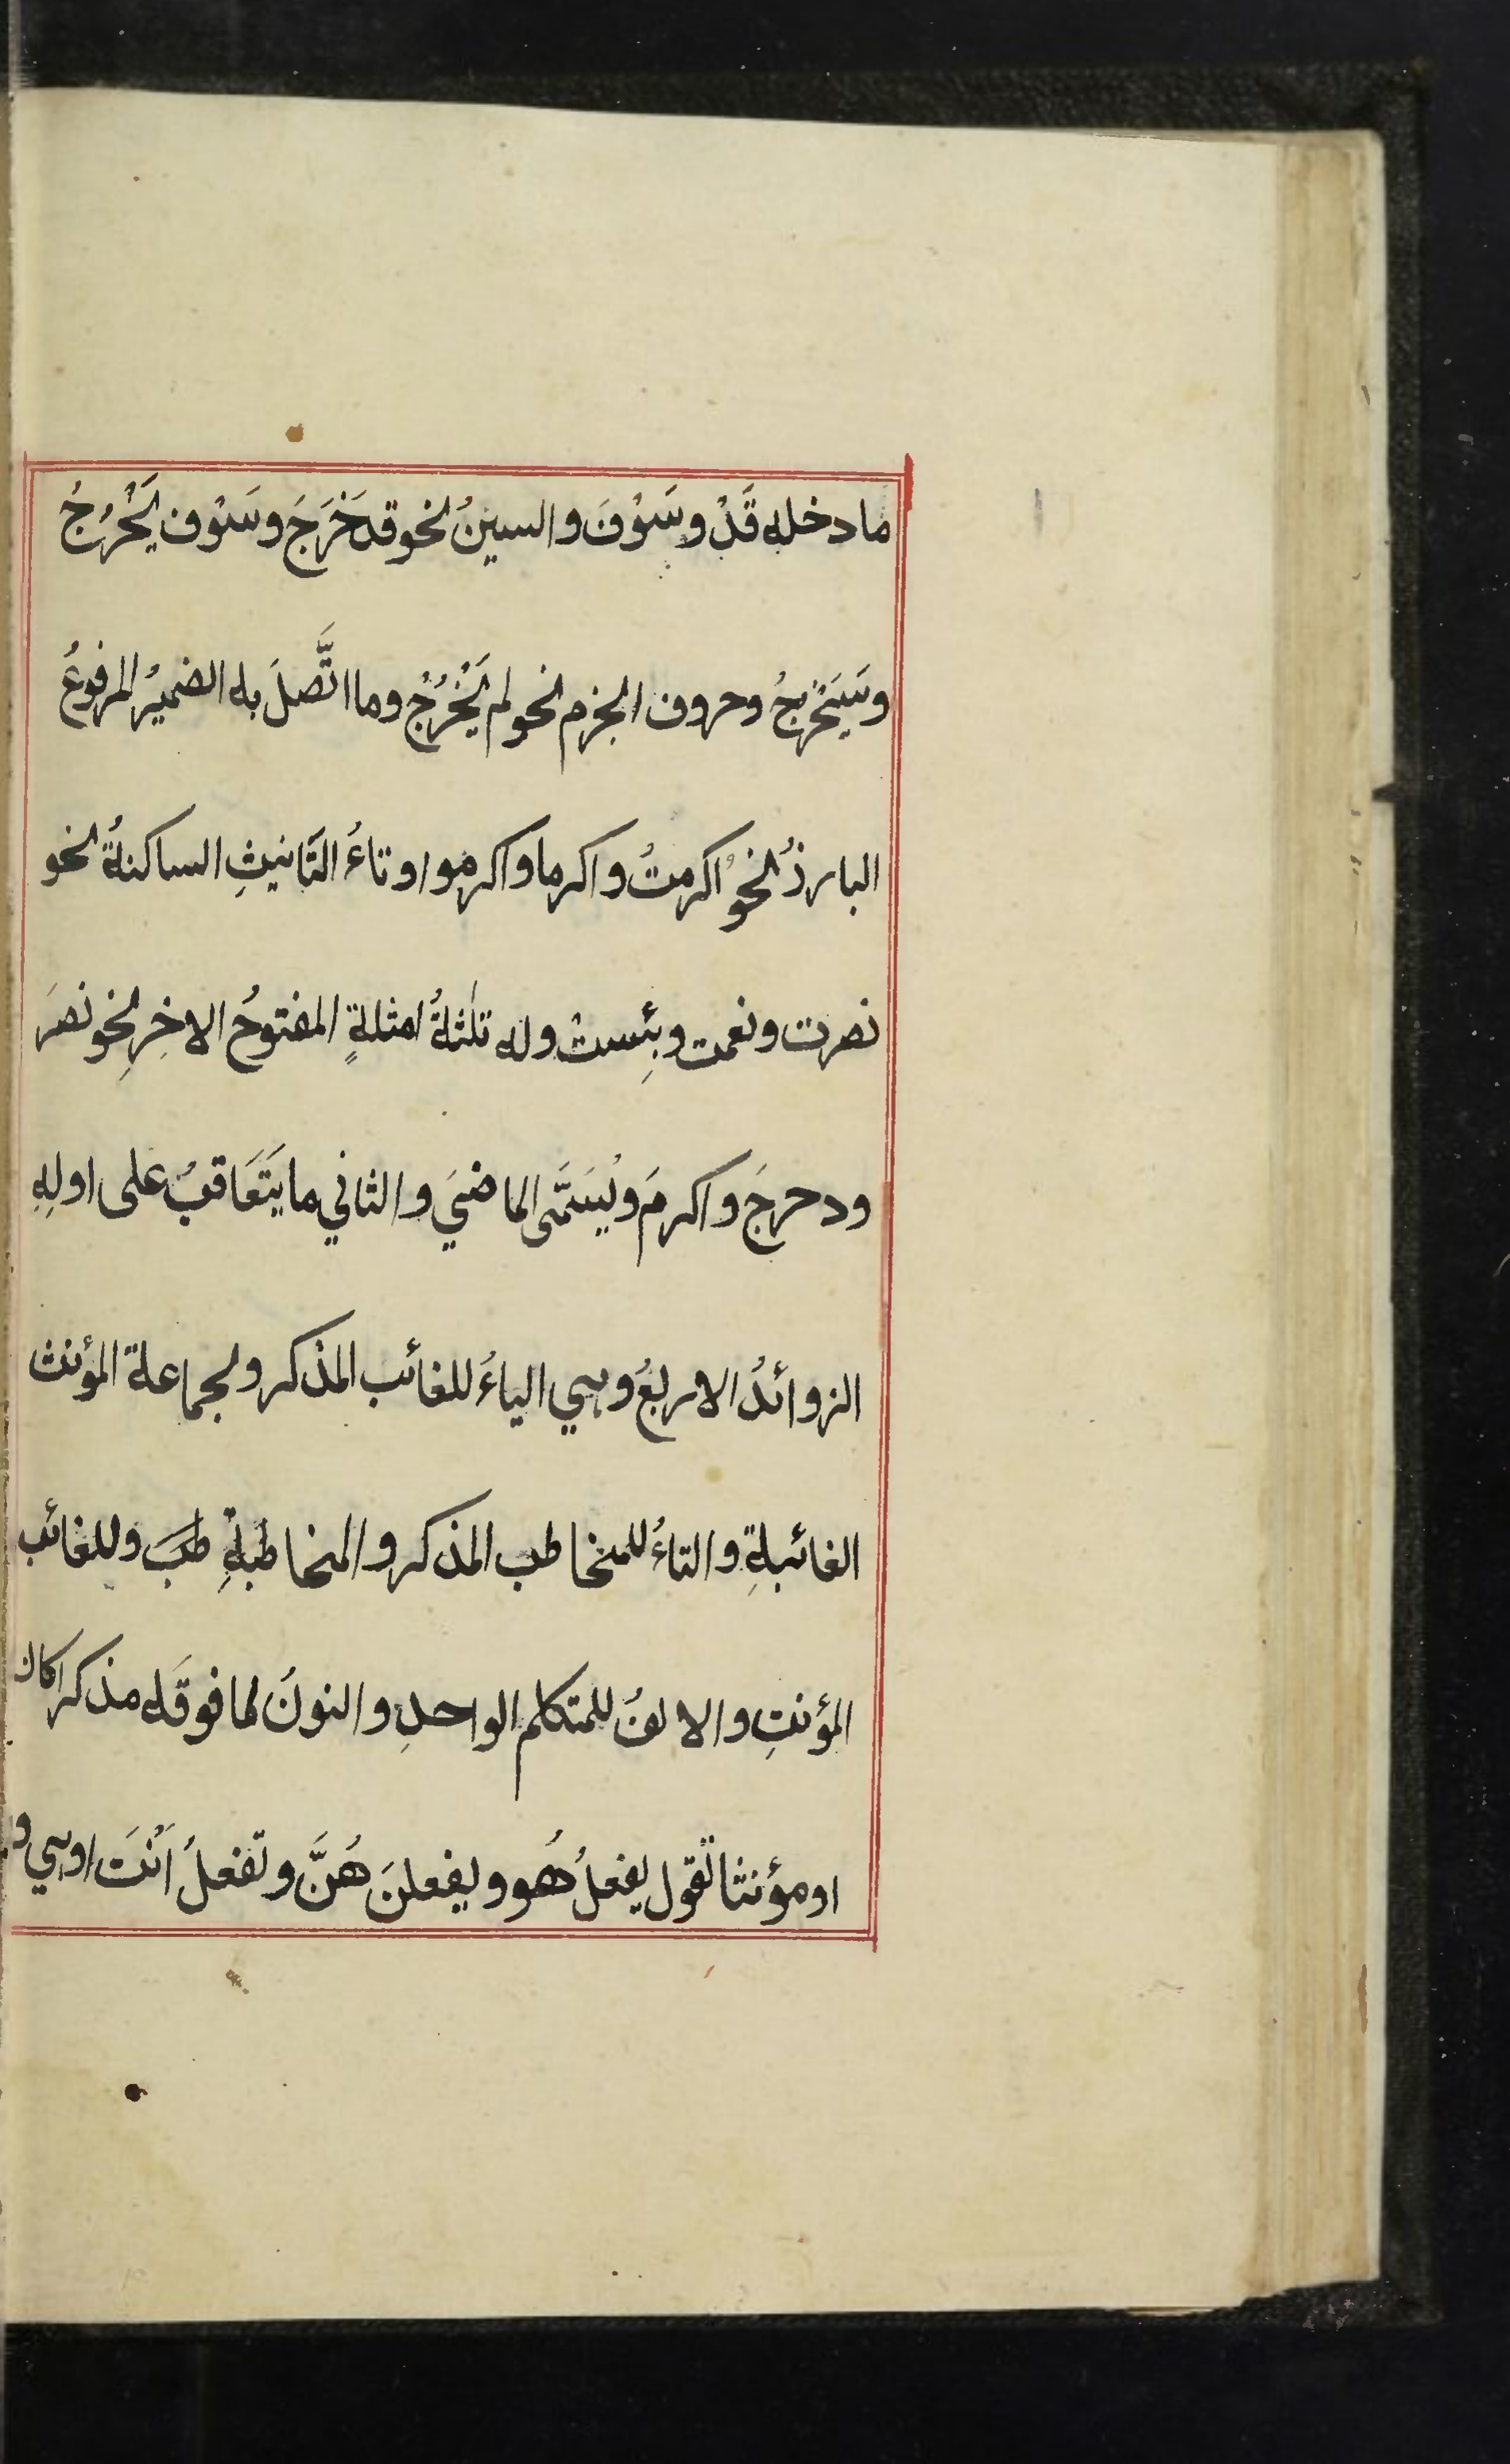 ما دخله قَدْ وسَوْفَ والسينُ نحو قد خَرَجَ وسَوْف يَخْرُجُ
وسَيَخْرجُ وحروف الجزم نحو لم يَخْرُجْ وما اتَّصلَ به الضميرُ المرفوعُ
البارزُ نحوُ اكرمتُ واكرما واكرموا وتاءُ التَّانيثِ الساكنةُ نحو
نصرت ونعمت وبِئست وله ثلثةُ امثلةٍ المفتوحُ الاخِرِ نحو نصرَ
ودحرجَ واكرمَ ويُسَمَّى الماضيَ والثاني ما يَتَعَاقبُ على اولِهِ
الزوائدُ الاربعُ وهي الياءُ للغائب المذكر ولجماعة المؤنث
الغائبةِ والتاءُ للمخاطب المذكر والمخاطبةِ طبَ وللغائب
المؤنثِ والالفُ للمتكلم الواحدِ والنونُ لما فوقَه مذكرا كان
او مؤنثا تقول يفعلُ هُو ويفعلنَ هُنَّ وتفعلُ اَنْتَ او هي و